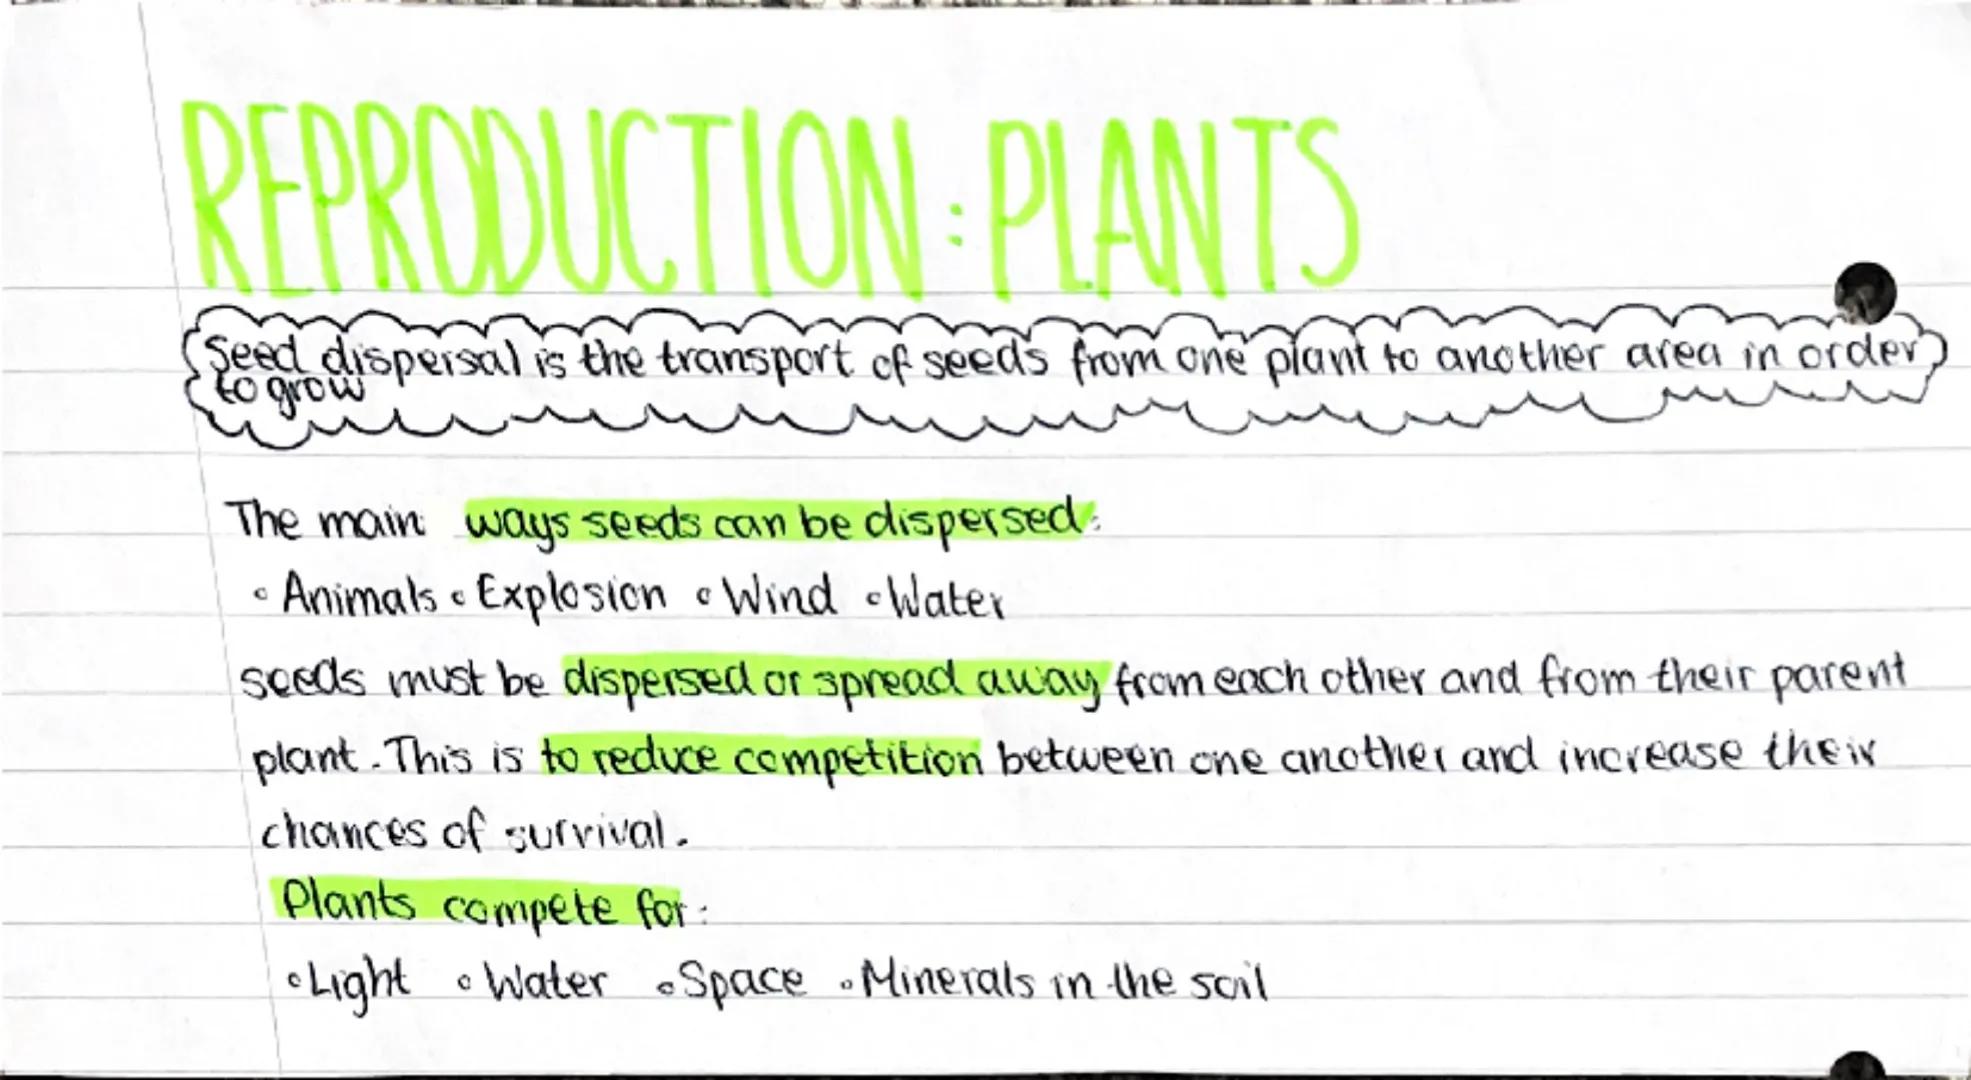 REPRODUCTION: PLANTS
Seed dispersal is the transport of seeds from one plant to another area in order
to grow
The main ways seeds can be dispersed:
• Animals • Explosion • Wind • Water
seeds must be dispersed or spread away from each other and from their parent
plant. This is to reduce competition between one another and increase their
chances of survival.
Plants compete for:
• Light • Water • Space • Minerals in the soil